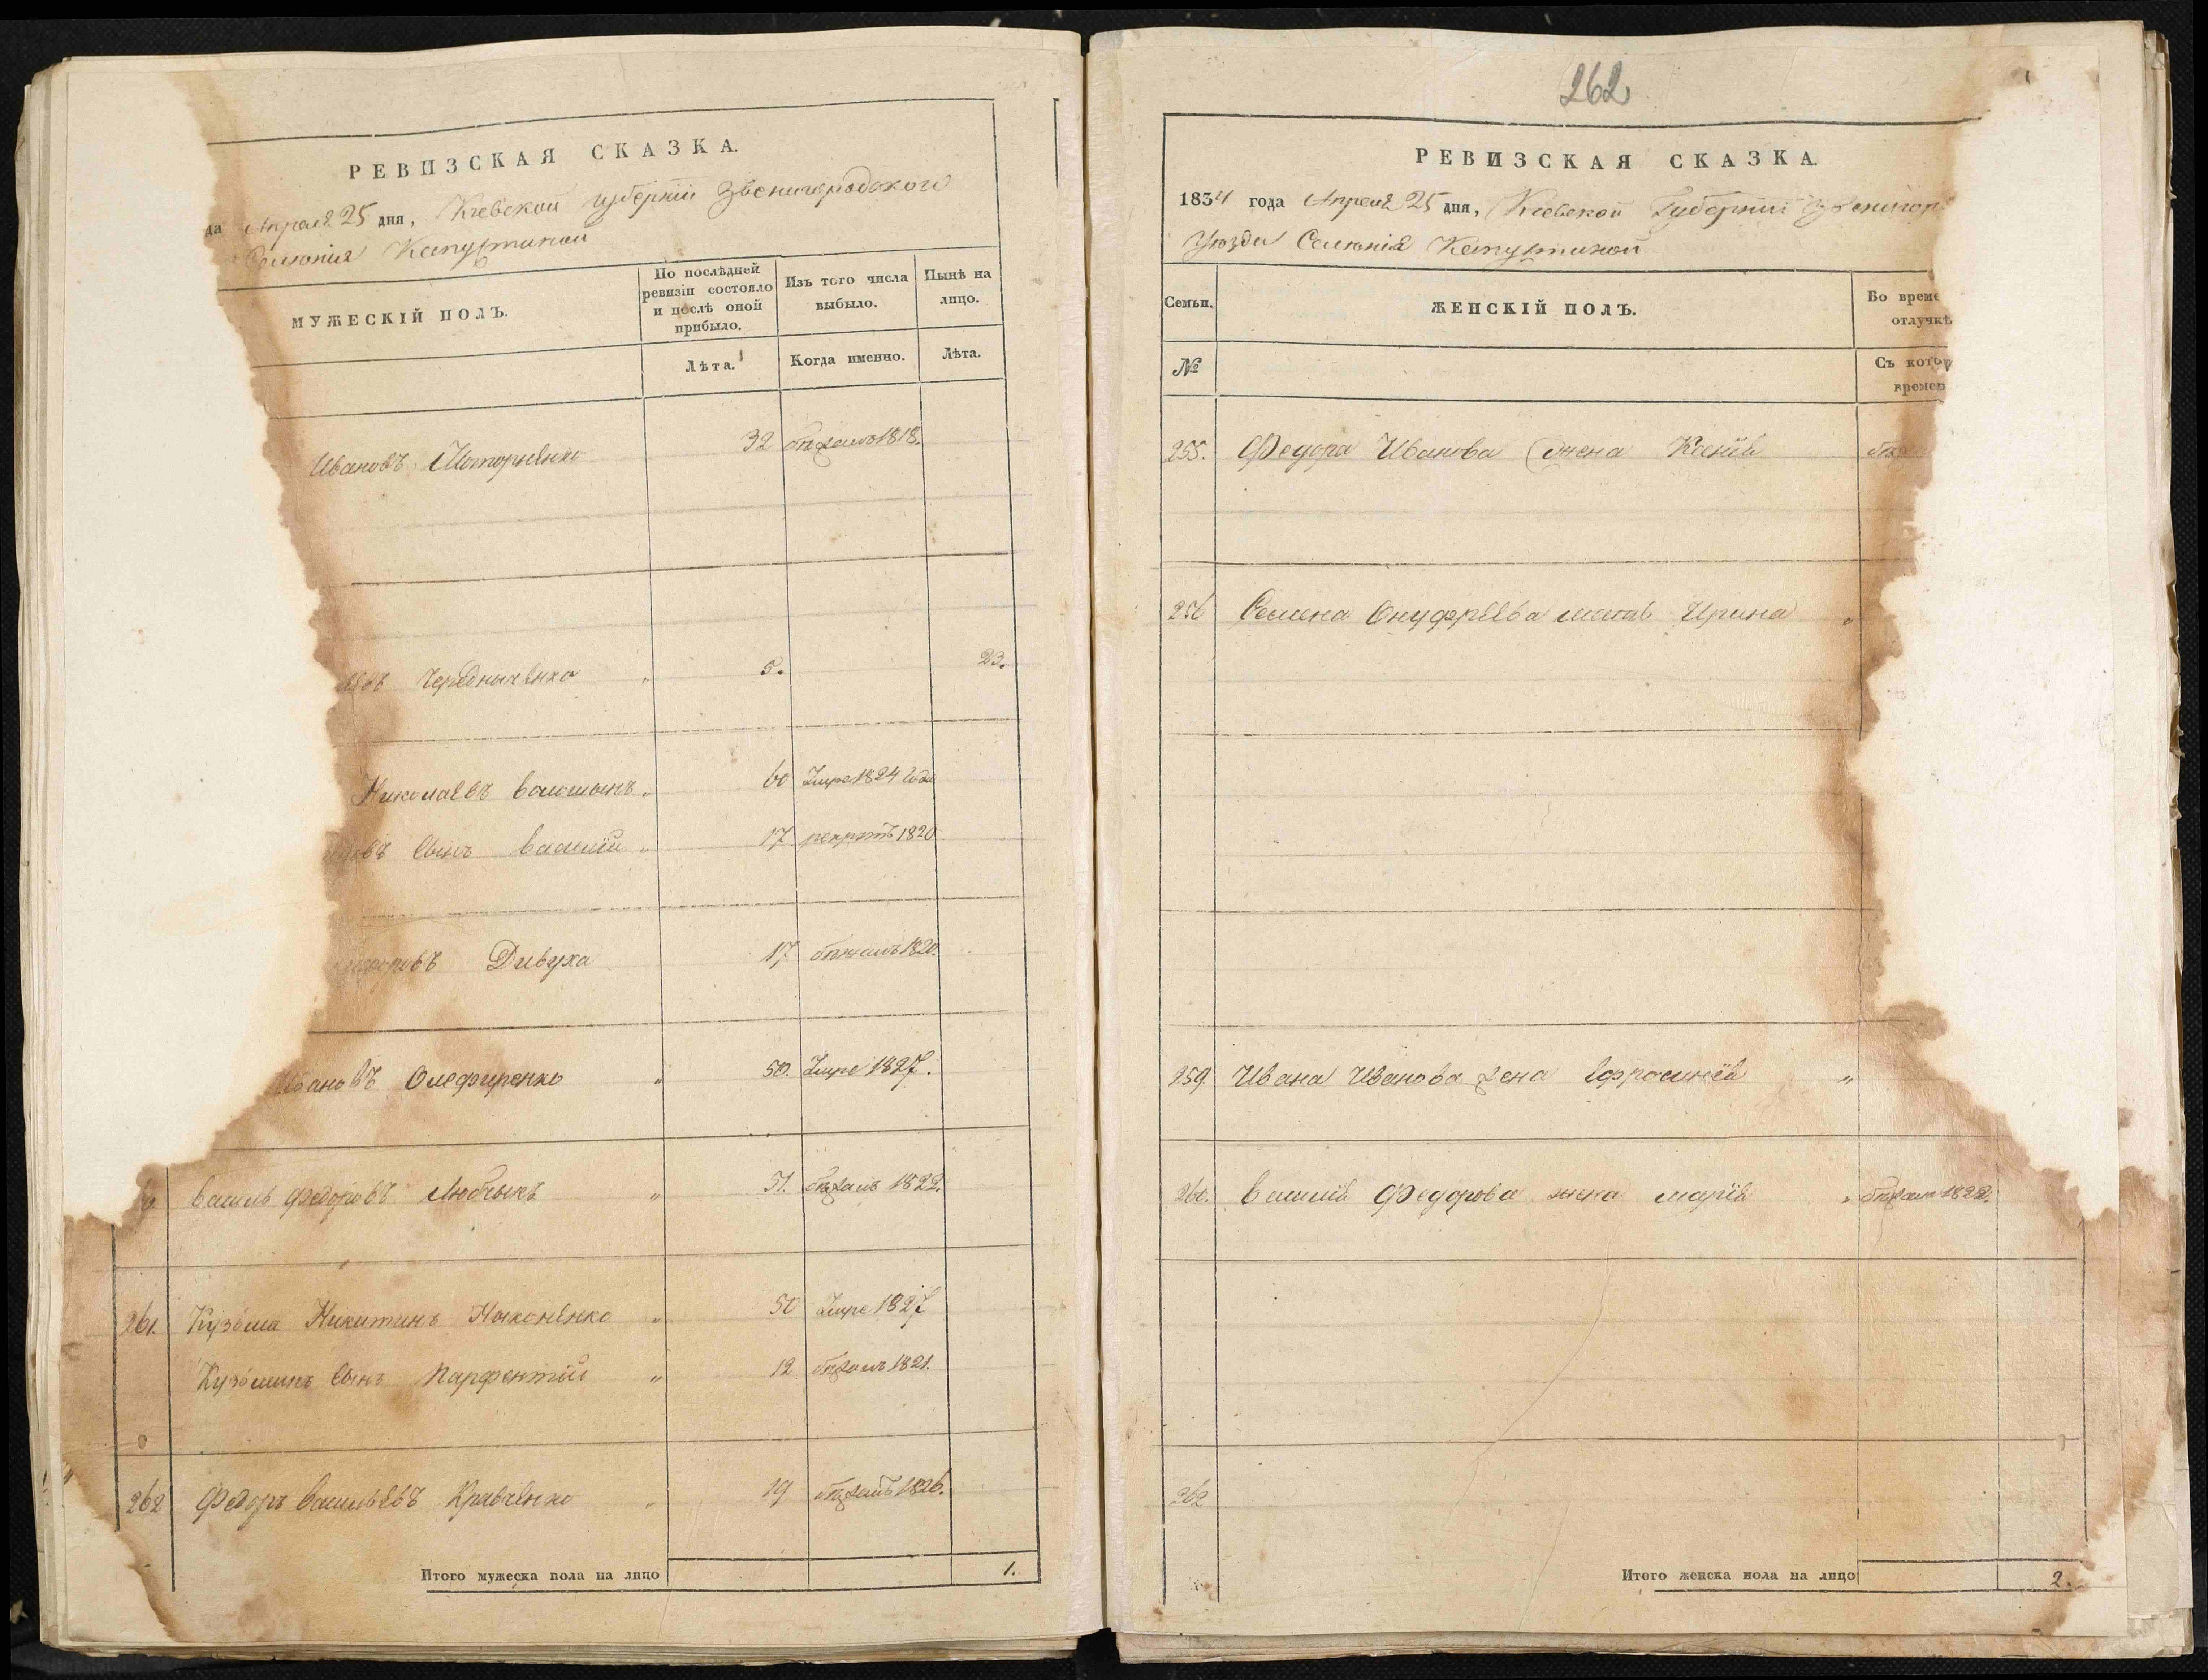 РЕВИЗСКАЯ СКАЗКА.
да Апреля 25 дня, Киевской губернии Звенигородскаго
Селенія
МУЖЕСКІЙ ПОЛЪ.
По послѣдней ревизіи состояло и послѣ оной прибыло.
Изъ того числа выбыло.
Нынѣ на лицо.
Лѣта.
Когда именно.
Лѣта.
Ивановъ 32 бѣжалъ 1818.
Чередныченко " 5. 23.
Николаевъ Волошынъ " 60 Умре 1824 года
сынъ Василій " 17 рекрутъ 1820
Дивуха 17 бѣжалъ 1820.
Ивановъ Олефиренко " 50. Умре 1827.
Василь Федоровъ Любчыкъ " 51. бѣжалъ 1822.
261. Кузьма Никитинъ Ныконенко " 50 Умре 1827
Кузьминъ сынъ Парфентій " 12 бѣжалъ 1821.
262 Федоръ Васильевъ Кравченко " 19 бѣжалъ 1826.
Итого мужеска пола на лицо 1.
262
РЕВИЗСКАЯ СКАЗКА.
1834 года Апреля 25 дня, Киевской Губернии Звенигор
Уѣзда Селенія
Семьи.
ЖЕНСКІЙ ПОЛЪ.
Во време
отлучкѣ
№
Съ котор
времен
255. Федора Иванова жена
256 Семена Онуфрѣева мать Ирина "
259 Ивана Иванова жена Ефросинія "
260. Василія Федорова жена Марія " бѣжали 1822.
262
Итого женска пола на лицо 2.